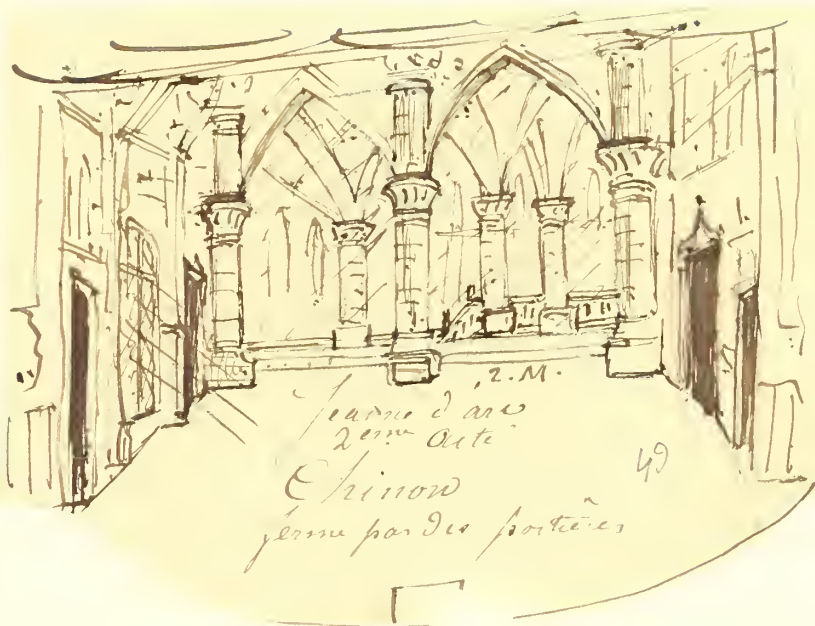 2.M.
Jeanne d'arc
2eme Acte
Chinon
fermé par des portières
49